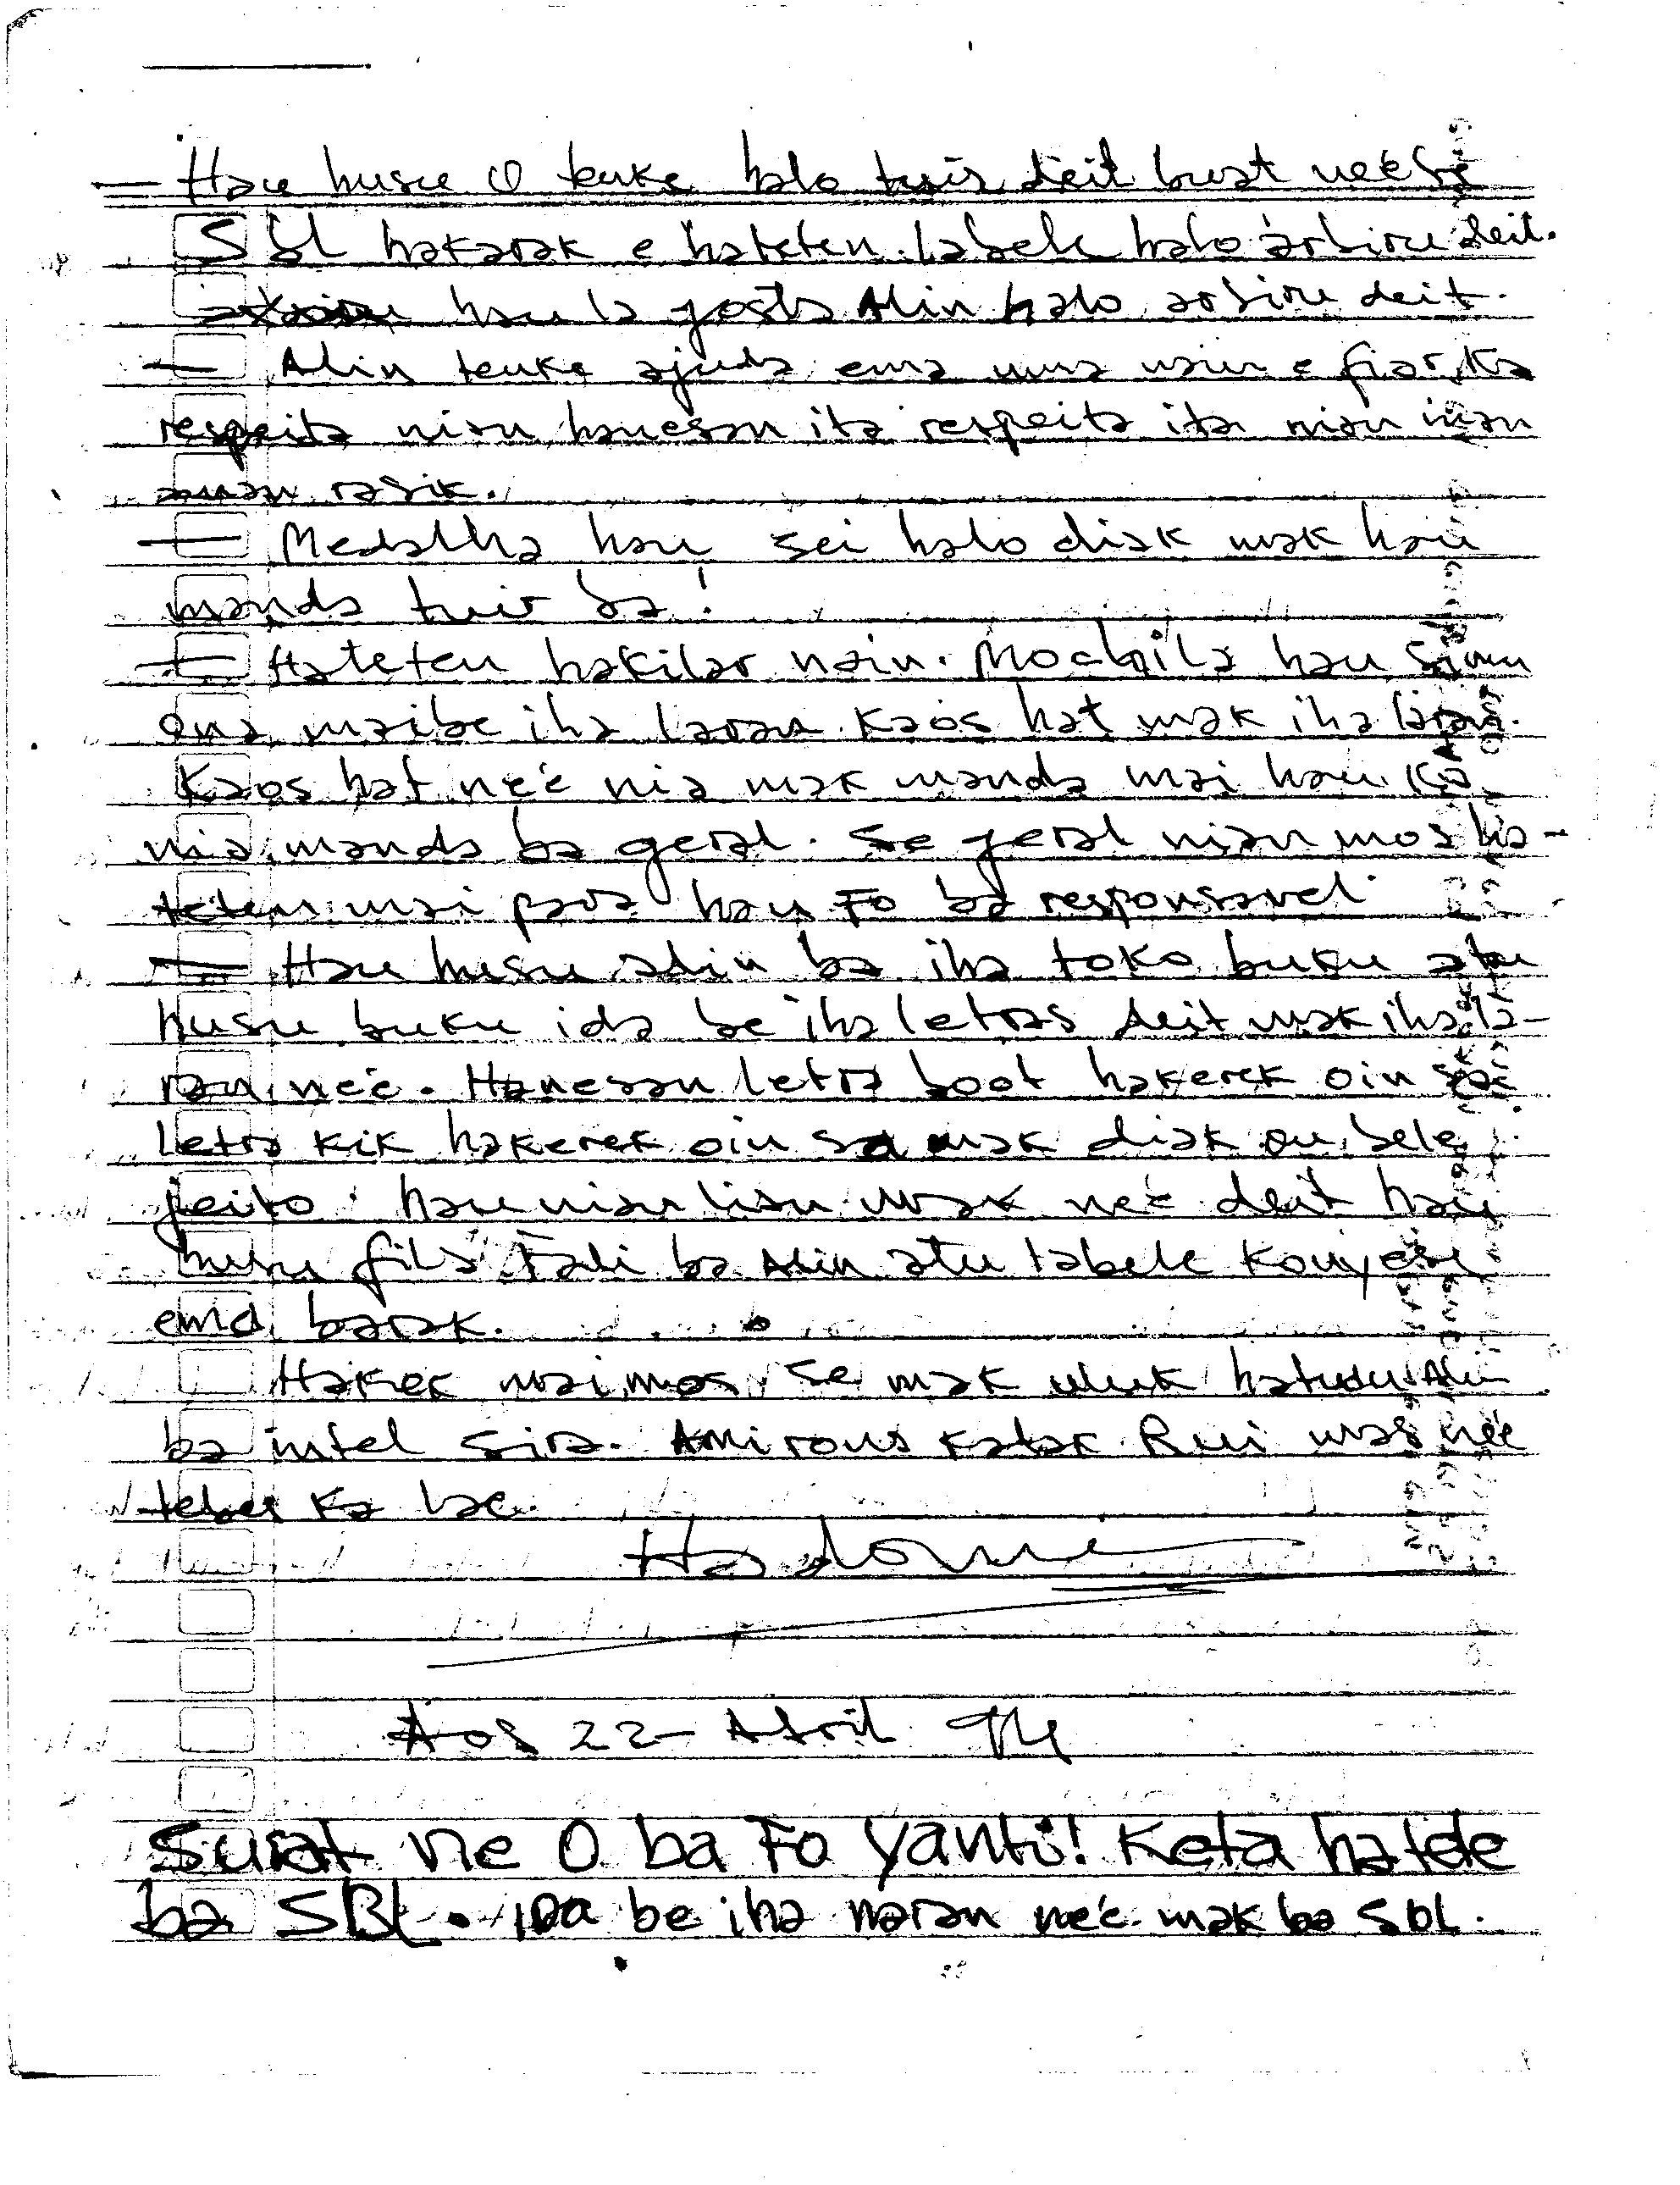 — Hau husu O tenke halo tuir deit buat neébé
SBL hakarak e hateten. labele halo arbiru deit.
hau la gosta Alin halo arbiru deit.
— Alin tenke ajuda ema uma nain e fiar, Ka
respeita nian hanesan ita respeita ita nian inan
aman rasik.
— Medalha hau sei halo diak mak hau
manda tuir ba!
— Hateten hakilar nain. Mochila hau simu
ona maibe iha laran Kaos hat mak iha laran.
Kaos hat neé nia mak manda mai hau Ka
nia manda ba geral. Se geral nian mos ha-
teten mai para hau Fo ba responsavel.
— Hau husu alin ba iha toko buku atu
husu buku ida be iha letras deit mak iha la-
ran neé. Hanesan letra boot hakerek oin sa
letra kik hakerek oin sa mak diak ou bele
jeito. hau nian lian mak neé deit hau
husu fila Fali ba Alin atu labele Konyese
ema barak.
Hakrek mai mos, se mak uluk hatudu Alin
ba intel sira. Ami rona katak Rui mas neé
tebes Ka lae.
Aos 22- Abril 94
Surat ne O ba Fo Yanti! Keta hatete
ba SBL. ida be iha naran neé mak ba SBL.